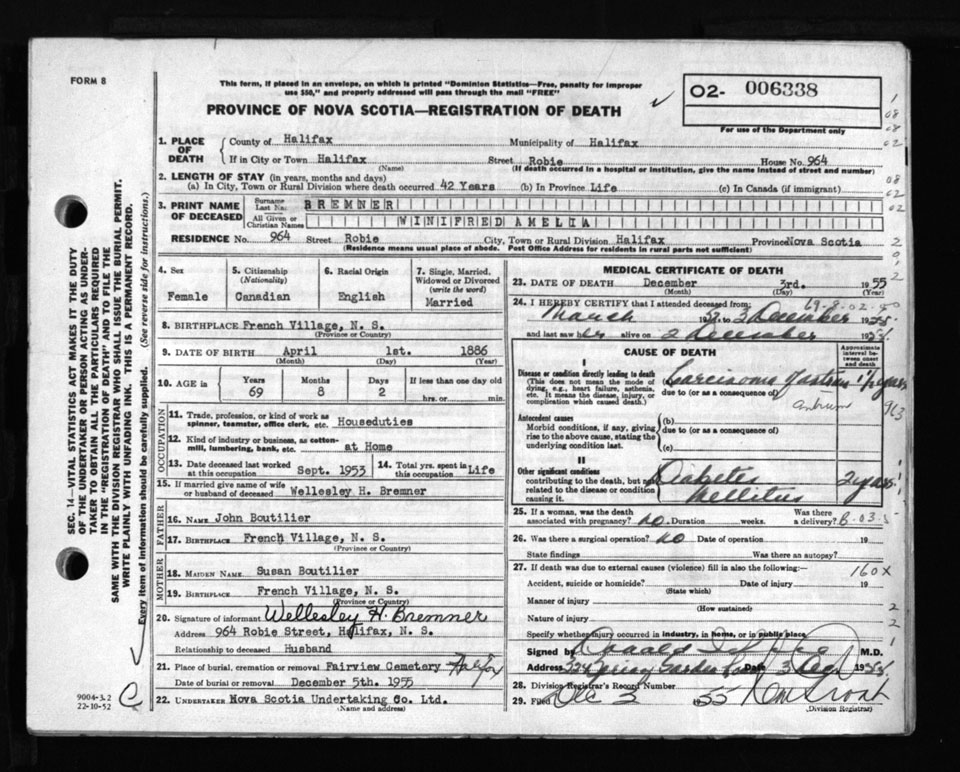 FORM 8
This form, if placed in an envelope, on which is printed "Dominion Statistics—Free, penalty for improper
use $50," and properly addressed will pass through the mail "FREE"
PROVINCE OF NOVA SCOTIA—REGISTRATION OF DEATH
02- 006338
For use of the Department only
1. PLACE OF DEATH
County of Halifax Municipality of Halifax
If in City or Town Halifax Street Robie House No. 964
(Name) (If death occurred in a hospital or institution, give the name instead of street and number)
2. LENGTH OF STAY (in years, months and days)
(a) In City, Town or Rural Division where death occurred 42 Years (b) In Province Life (c) In Canada (if immigrant)
3. PRINT NAME OF DECEASED
Surname Last No. BREMNER
All Given or Christian Names WINIFRED AMELIA
RESIDENCE No. 964 Street Robie City, Town or Rural Division Halifax Province Nova Scotia
(Residence means usual place of abode. Post Office Address for residents in rural parts not sufficient)
4. Sex
Female
5. Citizenship
(Nationality)
Canadian
6. Racial Origin
English
7. Single, Married,
Widowed or Divorced
(write the word)
Married
8. BIRTHPLACE French Village, N. S.
(Province or Country)
9. DATE OF BIRTH April 1st. 1886
(Month) (Day) (Year)
10. AGE in
Years Months Days If less than one day old
69 8 2 hrs. or min.
OCCUPATION
11. Trade, profession, or kind of work as
spinner, teamster, office clerk, etc. Houseduties
12. Kind of industry or business, as cotton-
mill, lumbering, bank, etc. at Home
13. Date deceased last worked
at this occupation Sept. 1953
14. Total yrs. spent in
this occupation Life
15. If married give name of wife
or husband of deceased Wellesley H. Bremner
FATHER
16. NAME John Boutilier
17. BIRTHPLACE French Village, N. S.
(Province or Country)
MOTHER
18. MAIDEN NAME Susan Boutilier
19. BIRTHPLACE French Village, N. S.
(Province or Country)
20. Signature of informant Wellesley H. Bremner
Address 964 Robie Street, Halifax, N. S.
Relationship to deceased Husband
21. Place of burial, cremation or removal Fairview Cemetery Halifax
Date of burial or removal December 5th. 1955
22. UNDERTAKER Nova Scotia Undertaking Co. Ltd.
(Name and address)
MEDICAL CERTIFICATE OF DEATH
23. DATE OF DEATH December 3rd. 1955
(Month) (Day) (Year)
24. I HEREBY CERTIFY that I attended deceased from
March to 3 December
and last saw her alive on 2 December
CAUSE OF DEATH
Approximate
interval be-
tween onset
and death
I
Disease or condition directly leading to death
(This does not mean the mode of
dying, e.g., heart failure, asthenia,
etc. It means the disease, injury, or
complication which caused death.)
Carcinoma
due to (or as a consequence of)
antrum
Antecedent causes
Morbid conditions, if any, giving
rise to the above cause, stating the
underlying condition last.
(b)
due to (or as a consequence of)
(c)
II
Other significant conditions
contributing to the death, but not
related to the disease or condition
causing it.
Diabetes
Mellitus
2 years
25. If a woman, was the death
associated with pregnancy? no. Duration weeks.
Was there
a delivery?
26. Was there a surgical operation? no Date of operation 19
State findings Was there an autopsy?
27. If death was due to external causes (violence) fill in also the following:—
160X
Accident, suicide or homicide? Date of injury 19
(State which)
Manner of injury
(How sustained)
Nature of injury
Specify whether injury occurred in industry, in home, or in public place
Signed by Donald M.D.
Address Spring Garden Road Date 3 Dec
28. Division Registrar's Record Number
29. Filed Dec 1955
(Division Registrar)
SEC. 14—VITAL STATISTICS ACT MAKES IT THE DUTY
OF THE UNDERTAKER OR PERSON ACTING AS UNDER-
TAKER TO OBTAIN ALL THE PARTICULARS REQUIRED
IN THE "REGISTRATION OF DEATH" AND TO FILE THE
SAME WITH THE DIVISION REGISTRAR WHO SHALL ISSUE THE BURIAL PERMIT.
WRITE PLAINLY WITH UNFADING INK. THIS IS A PERMANENT RECORD.
Every item of information should be carefully supplied. (See reverse side for instructions.)
9004-3.2
22-10-52